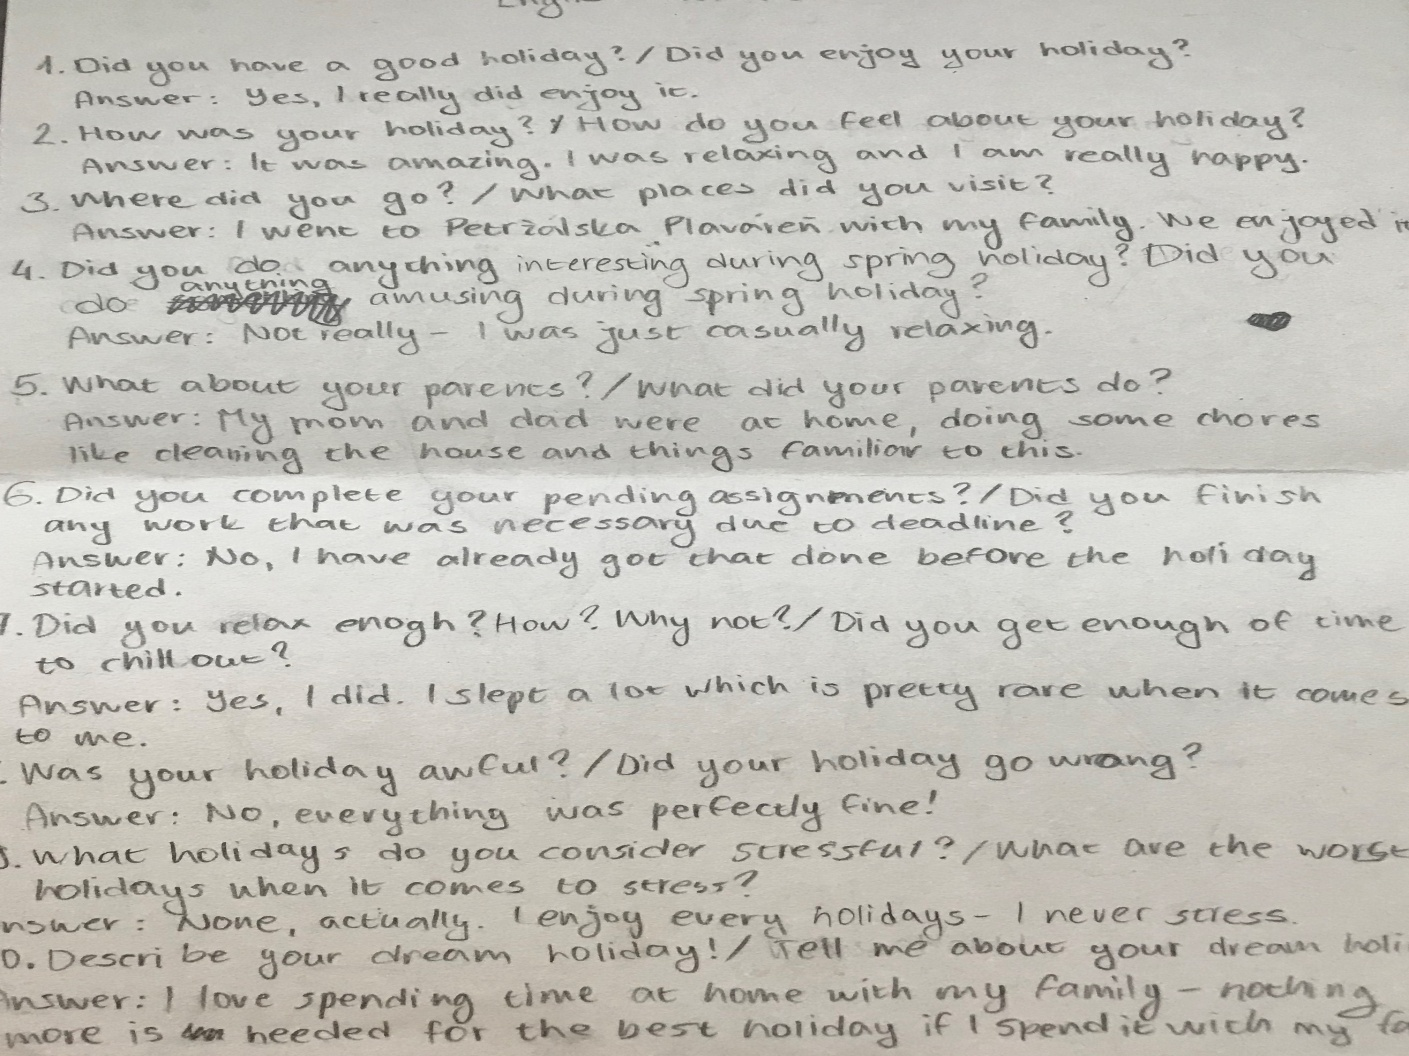 1. Did you have a good holiday? / Did you enjoy your holiday?
Answer: Yes, I really did enjoy it.
2. How was your holiday? / How do you feel about your holiday?
Answer: It was amazing. I was relaxing and I am really happy.
3. Where did you go? / What places did you visit?
Answer: I went to Petržalska Plaváreň with my family. We enjoyed it
4. Did you do anything interesting during spring holiday? Did you
do anything amusing during spring holiday?
Answer: Not really – I was just casually relaxing.
5. What about your parents? / What did your parents do?
Answer: My mom and dad were at home, doing some chores
like cleaning the house and things familiar to this.
6. Did you complete your pending assignments? / Did you finish
any work that was necessary due to deadline?
Answer: No, I have already got that done before the holiday
started.
7. Did you relax enogh? How? Why not? / Did you get enough of time
to chill out?
Answer: Yes, I did. I slept a lot which is pretty rare when it comes
to me.
. Was your holiday awful? / Did your holiday go wrong?
Answer: No, everything was perfectly fine!
. What holidays do you consider stressful? / What are the worst
holidays when it comes to stress?
nswer: None, actually. I enjoy every holidays – I never stress.
0. Describe your dream holiday! / Tell me about your dream holi
Answer: I love spending time at home with my family – nothing
more is needed for the best holiday if I spend it with my fa